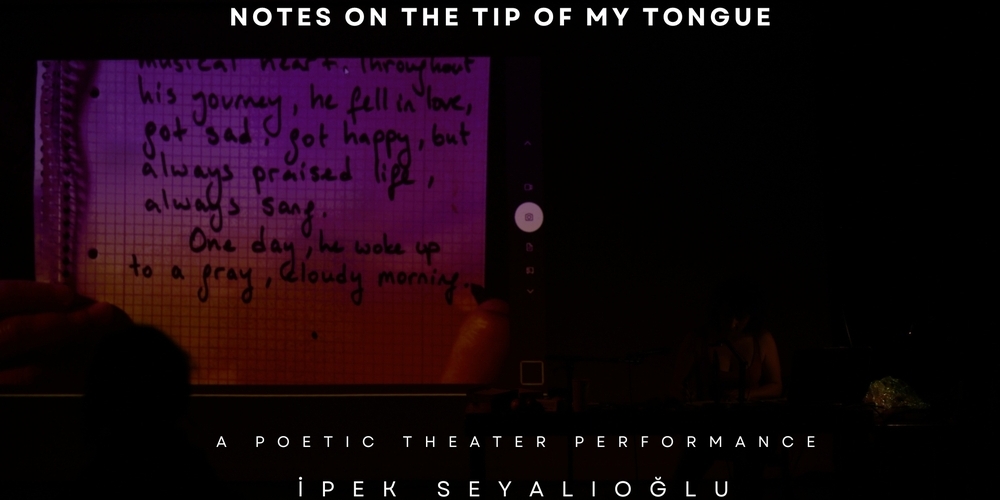 NOTES ON THE TIP OF MY TONGUE
musical heart. Throughout
his journey, he fell in love,
got sad, got happy, but
always praised life,
always sang.
One day, he woke up
to a gray, cloudy morning.
A POETIC THEATER PERFORMANCE
İPEK SEYALIOĞLU